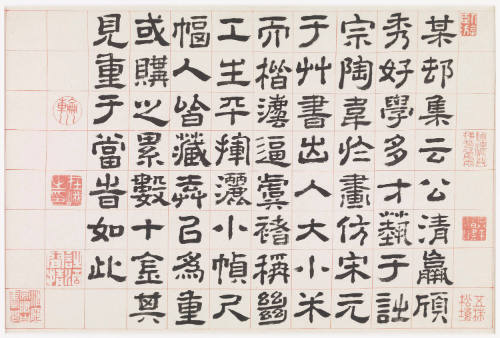 某邨集云公清羸頎
秀好學多才藝于詩
宗陶韋於畫仿宋元
于艸書出入大小米
而楷灋逼虞褚稱
工生平揮灑小幀尺
幅人皆藏弆㠯爲重
或購之累數十金其
見重于當旹如此